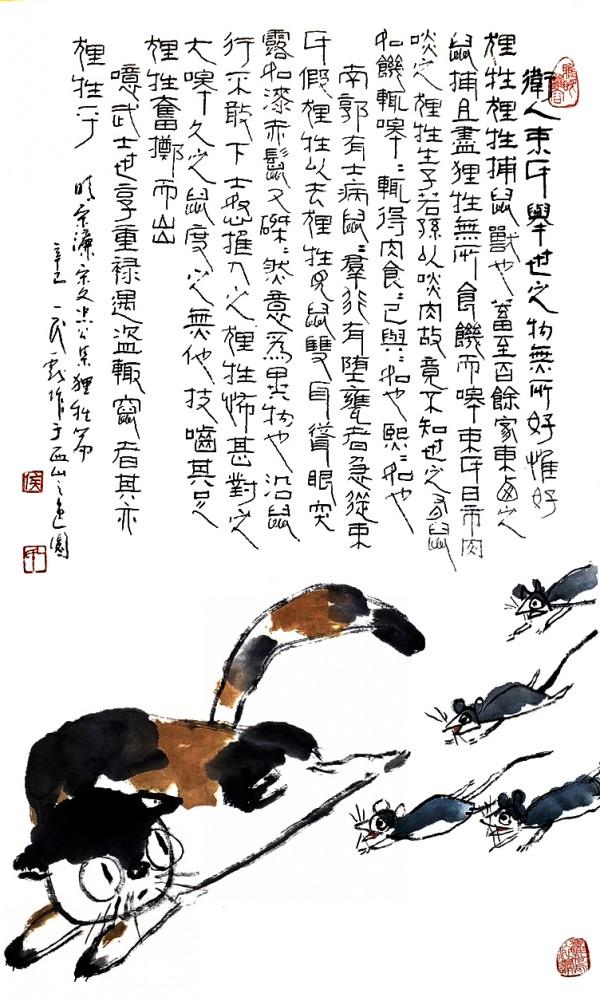 衛人束氏舉世之物無所好惟好
狸狌狸狌捕鼠獸也蓄至百餘家東鹵之
鼠捕且盡狸狌無所食饑而嗥束氏日市肉
啖之狸狌生子若孫以啖肉故竟不知世之有鼠
如饑輒嗥〻輒得肉食〻已與〻如也熙〻如也
南郭有士病鼠〻羣行有墮甕者急從束
氏假狸狌以去狸狌見鼠雙耳聳眼突
露如漆赤鬣又磔〻然意為異物也沿鼠
行不敢下士怒推入之狸狌怖甚對之
大嗥久之鼠度之無他技嚙其足
狸狌奮擲而出
噫武士世享重祿遇盜輒竄者其亦
狸狌乎 明宋濂宋文公集狸狌篇
辛巳 一民 作于西山之 園
侯